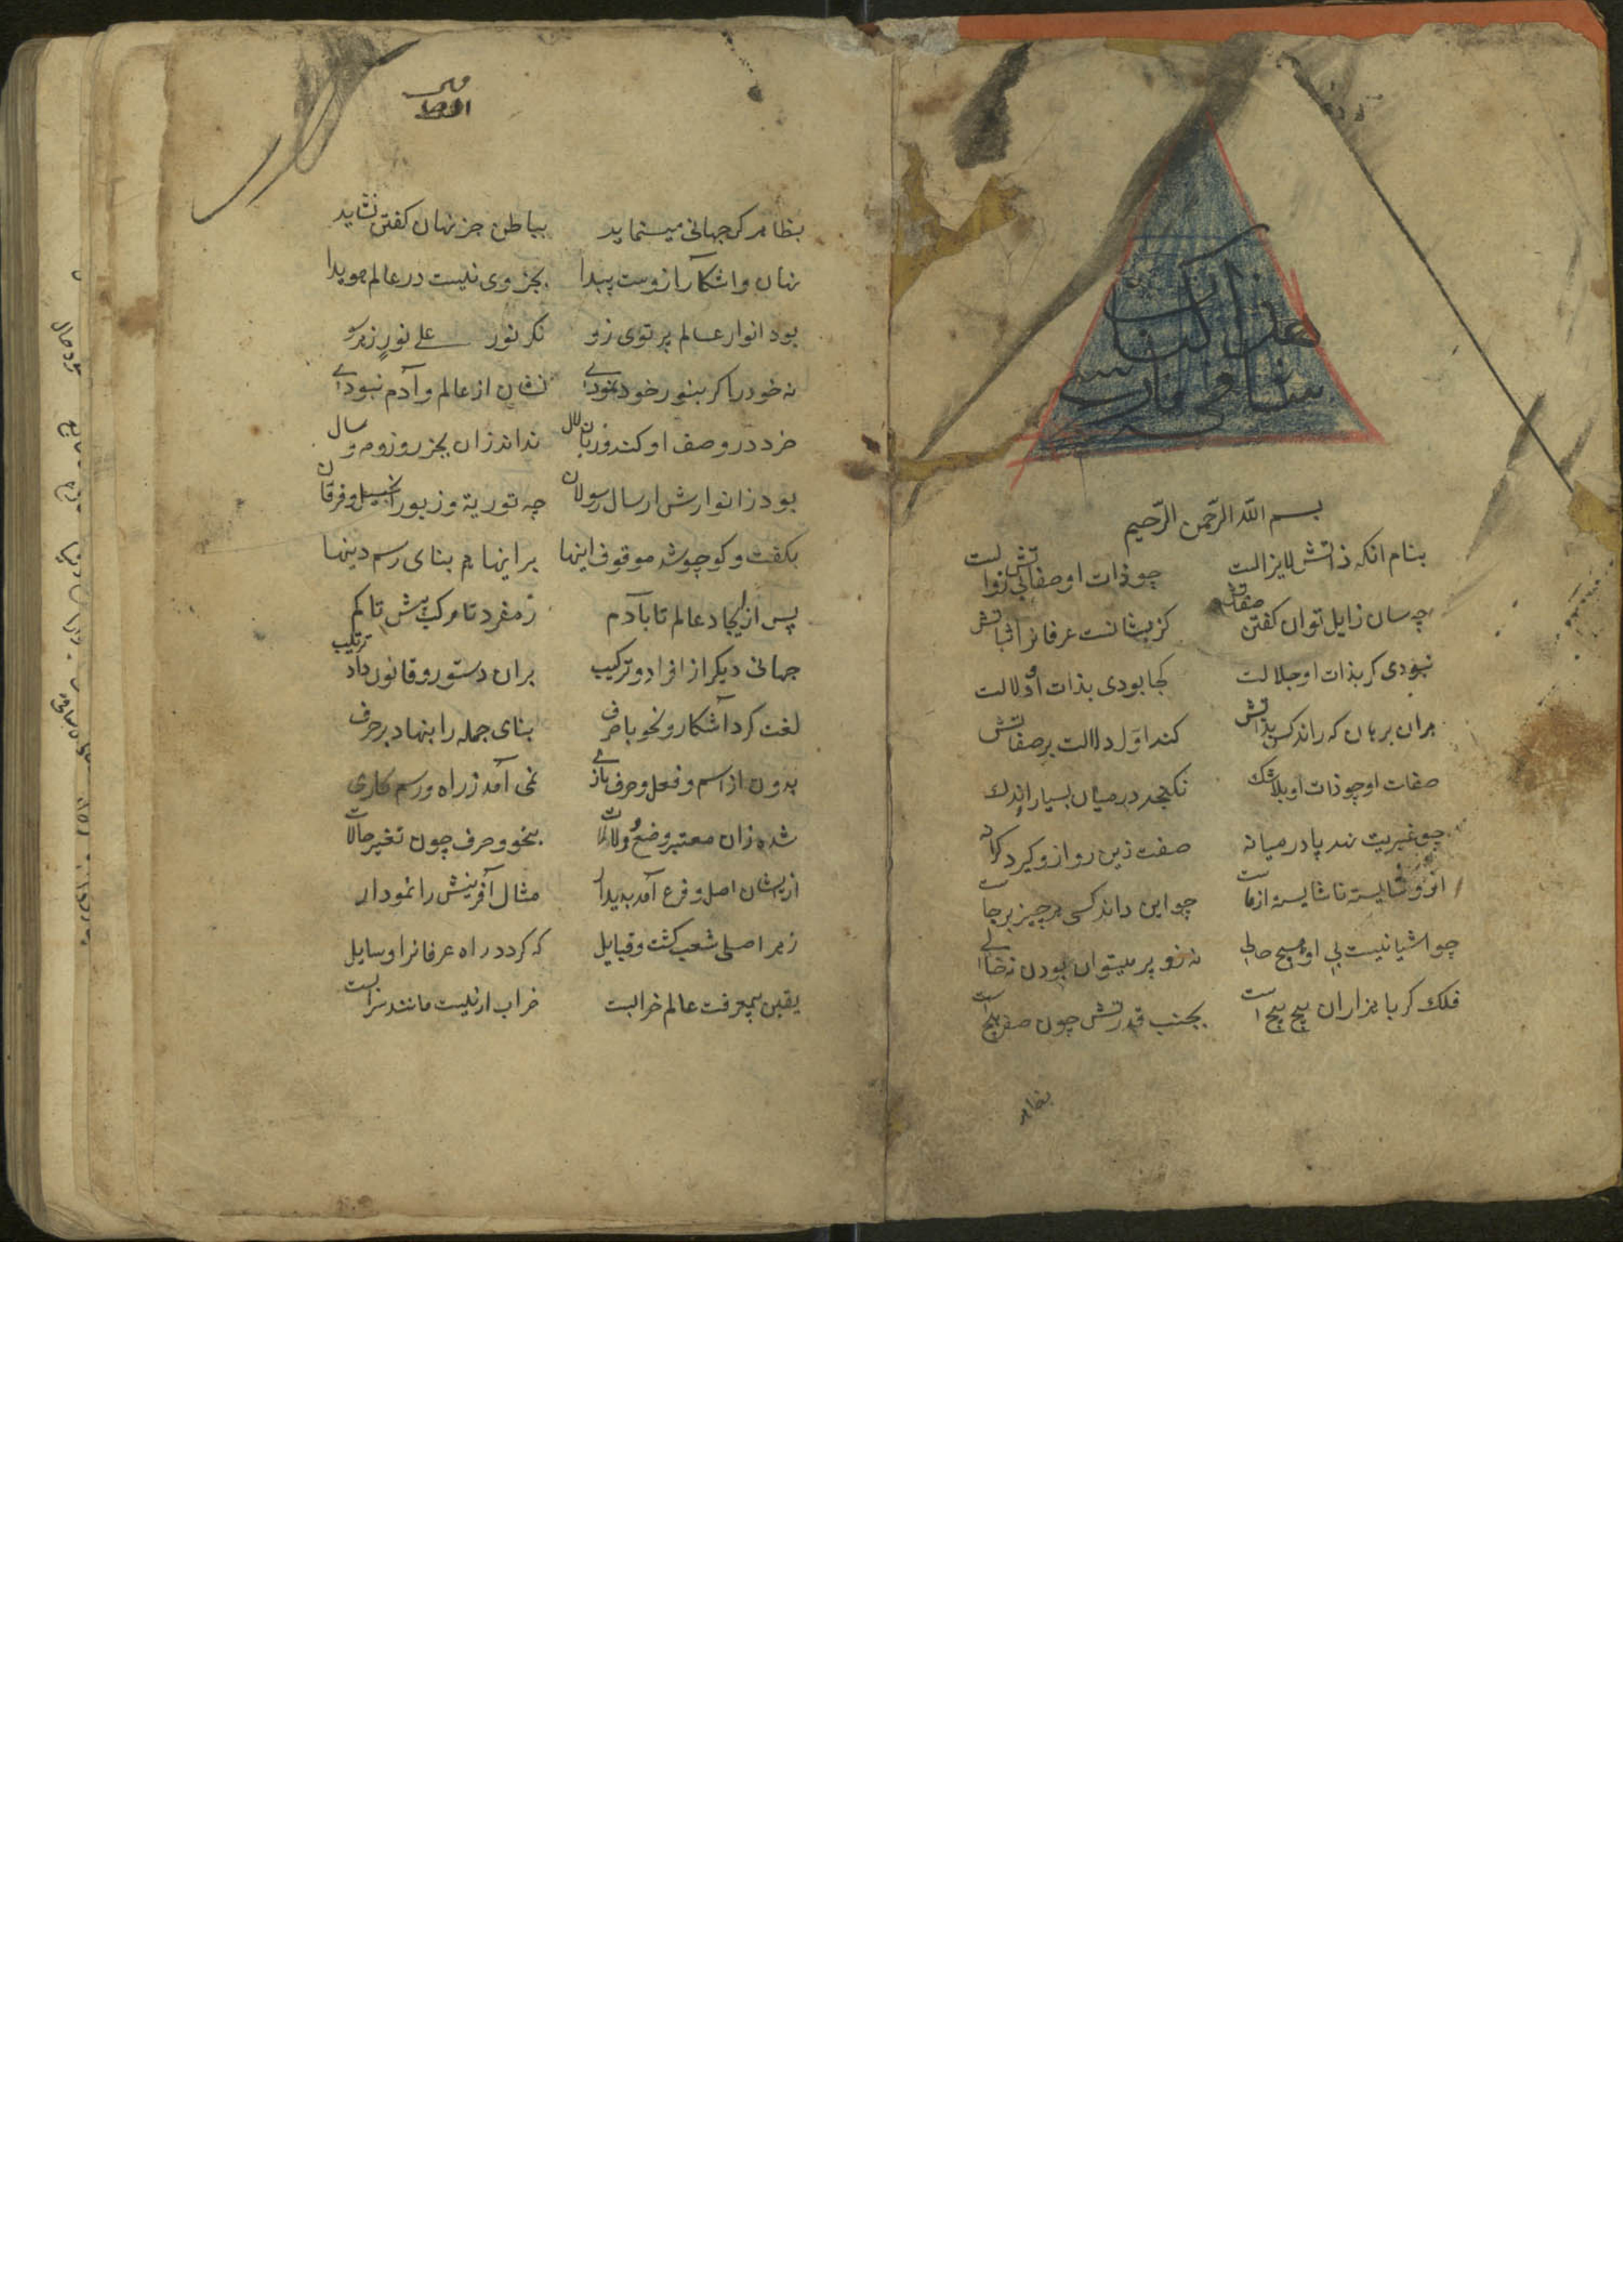 هذا كتاب
بسم الله الرّحمن الرّحيم
بنام انکه ذاتش لایزالست چو ذات او صفاتش بی زوالست
چه سان زایل توان کفتن صفاتش کزیشانست عرفانرا ثباتش
نبودی کر بذات او جلالت کجا بودی بذات او دلالت
هران برهان که راند کس بذاتش کند اوّل دلالت بر صفاتش
صفات او چو ذات او بلاشک نکنجد در میان بسیار اندک
چو غیریت نهد پا در میانه صفت زین رو ازو کیرد کرانه
ازو شایسته ناشایسته از ماست چو این داند کسی هر چیز برجاست
چو اشیا نیست بی او هیچ حالی نه زو پر میتوان بودن نه خالی
فلک کر با هزاران پیچ پیچ است بجنب قدرتش چون صفر هیچ است
بظاهر
بظاهر کر جهانی مینماید بباطن جز نهان کفتن نشاید
نهان و اشکارا زوست پیدا بجز وی نیست در عالم هویدا
بود انوار عالم پرتوی زو نکر نور علے نورٍ زهر سو
نه خود را کر بنور خود نمودے نشان از عالم و آدم نبودے
خرد در وصف او کند و زبان لال نداند زان بجز روز و مه و سال
بود ز انوارش ارسال رسولان چه توریة و زبور انجیل و فرقان
بکفت و کو چو شد موقوف اینها بر اینها هم بنای رسم دینها
پس از ایجاد عالم تا بآدم ز مفرد تا مرکب بیش تا کم
جهانی دیکر از افراد و ترکیب بران دستور و قانون داد ترتیب
لغت کرد آشکار و نحو با صرف بنای جمله را بنهاد بر حرف
بدون از اسم و فعل و حرف بازے نمی آمد ز راه و رسم کاری
شده زان معتبر وضع و دلالات بنحو و صرف چون تغیر حالات
ازیشان اصل و فرع آمد پدیدار مثال آفرینش را نمودار
ز هر اصلی شعب کشت و قبایل که کردد راه عرفانرا وسایل
یقین بیمعرفت عالم خرابست خراب ار نیست مانند سرابست